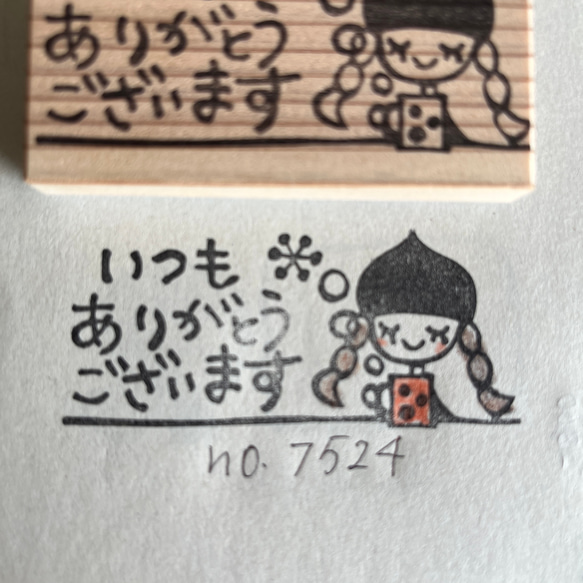 ありがとう
ございます
いつも
ありがとう
ございます
no. 7524